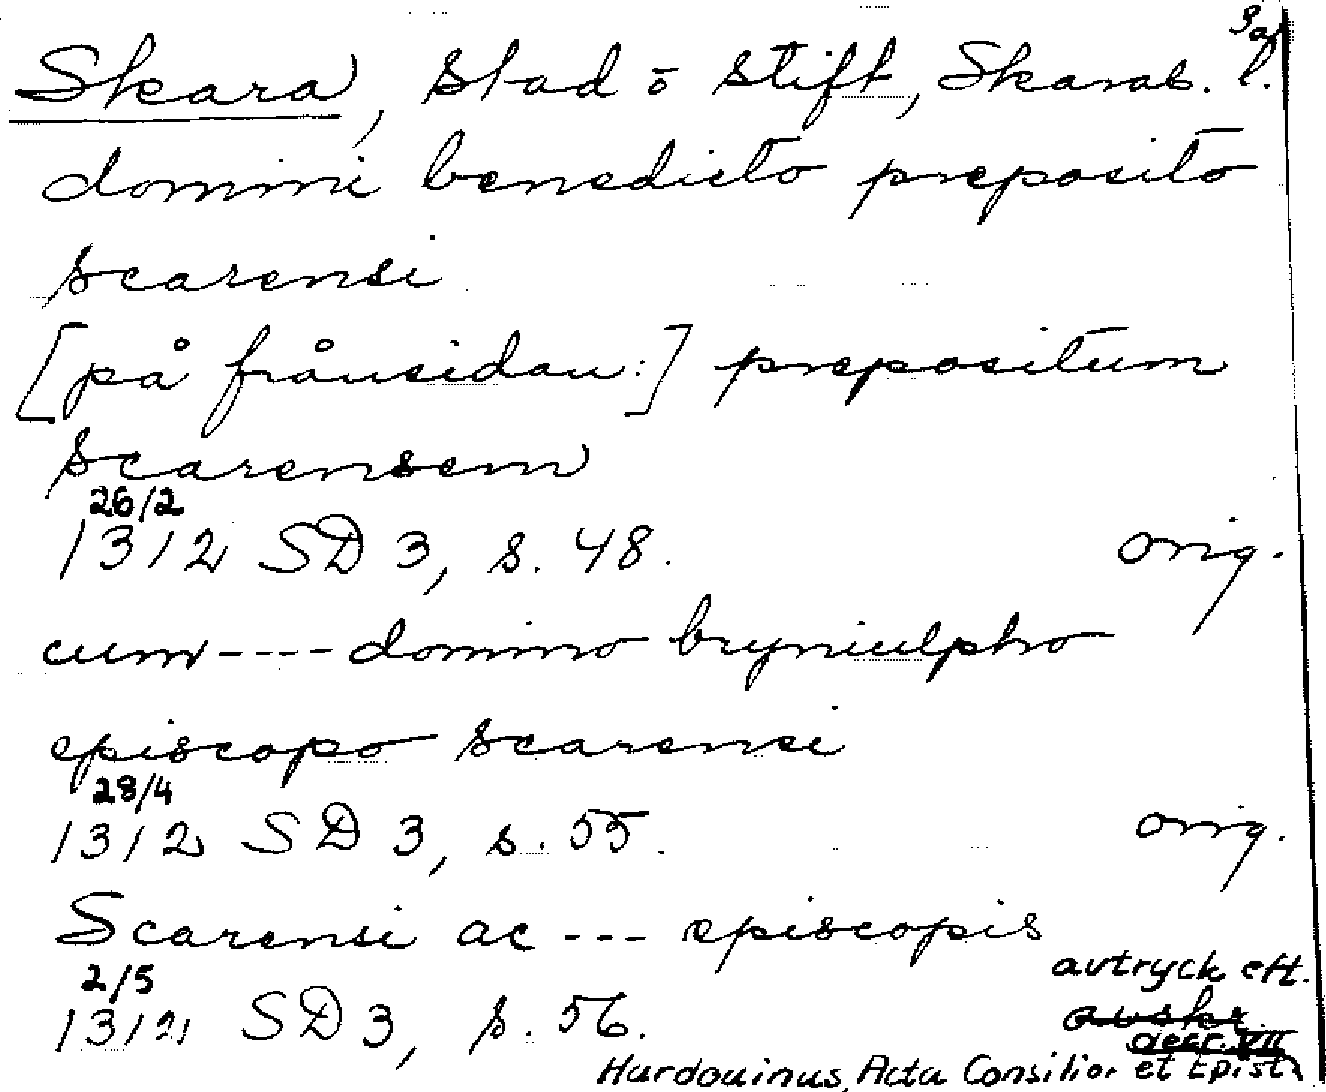 9a
Skara, stad o stift, Skarab. l.
domini benedicto preposito
scarensi
[på frånsidan:] prepositum
scarensem
26/2
1312 SD 3, s. 48. orig.
cum---- domino bryniulpho
episcopo scarensi
28/4
1312 SD 3, s. 55. orig.
Scarensi ac --- episcopis
2/5
1312 SD 3, s. 56. avtryck eft.
avskr.
Hardouinus, Acta Consilior et Epist.